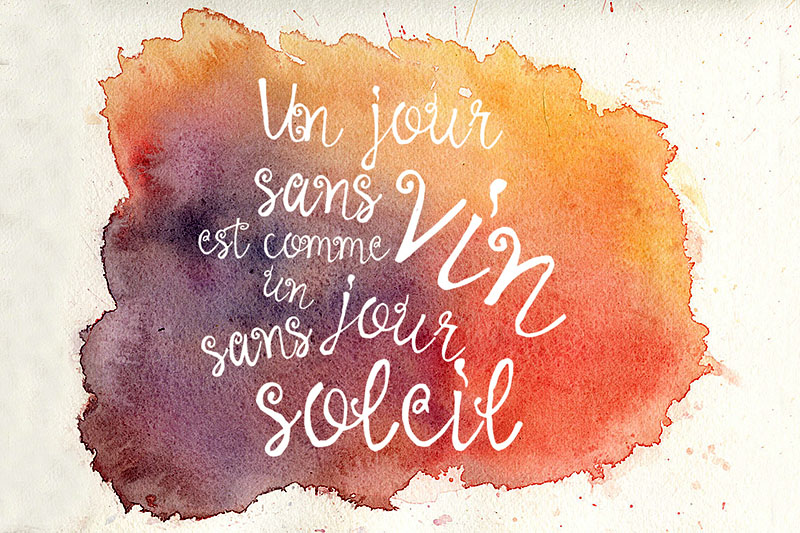 Un jour
sans vin
est comme
un
sans jour
soleil